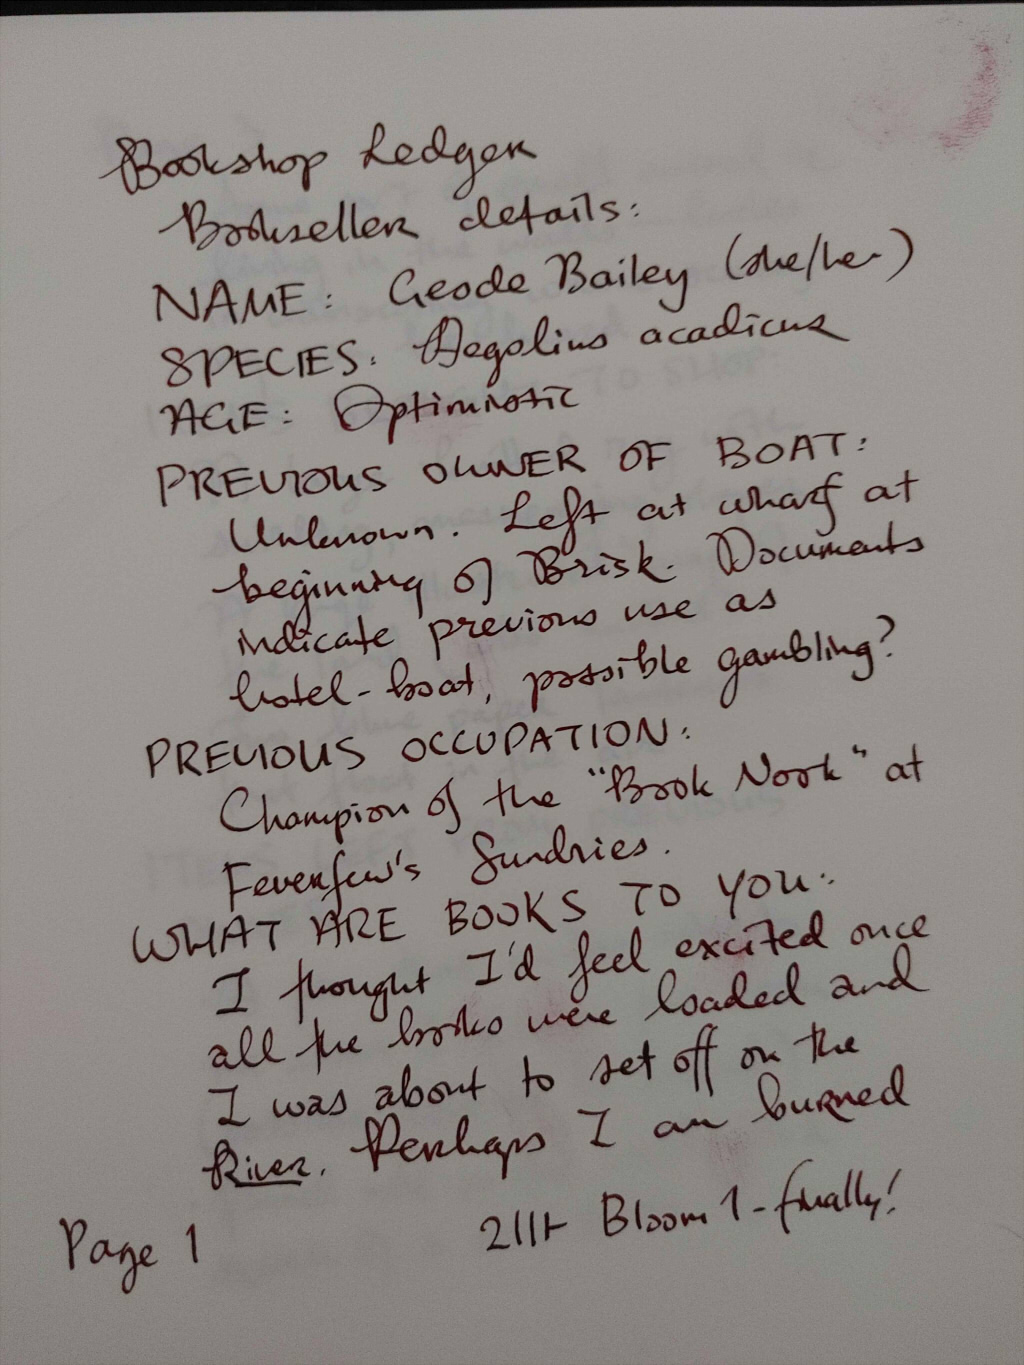 Bookshop Ledger
Bookseller details:
NAME: Geode Bailey (she/her)
SPECIES: Aegolius acadicus
AGE: Optimistic
PREVIOUS OWNER OF BOAT:
Unknown. Left at wharf at
beginning of Brisk. Documents
indicate previous use as
hotel-boat, possible gambling?
PREVIOUS OCCUPATION:
Champion of the "Book Nook" at
Feverfew's Sundries.
WHAT ARE BOOKS TO YOU:
I thought I'd feel excited once
all the books were loaded and
I was about to set off on the
River. Perhaps I am burned
Page 1
Bloom 1 - finally!